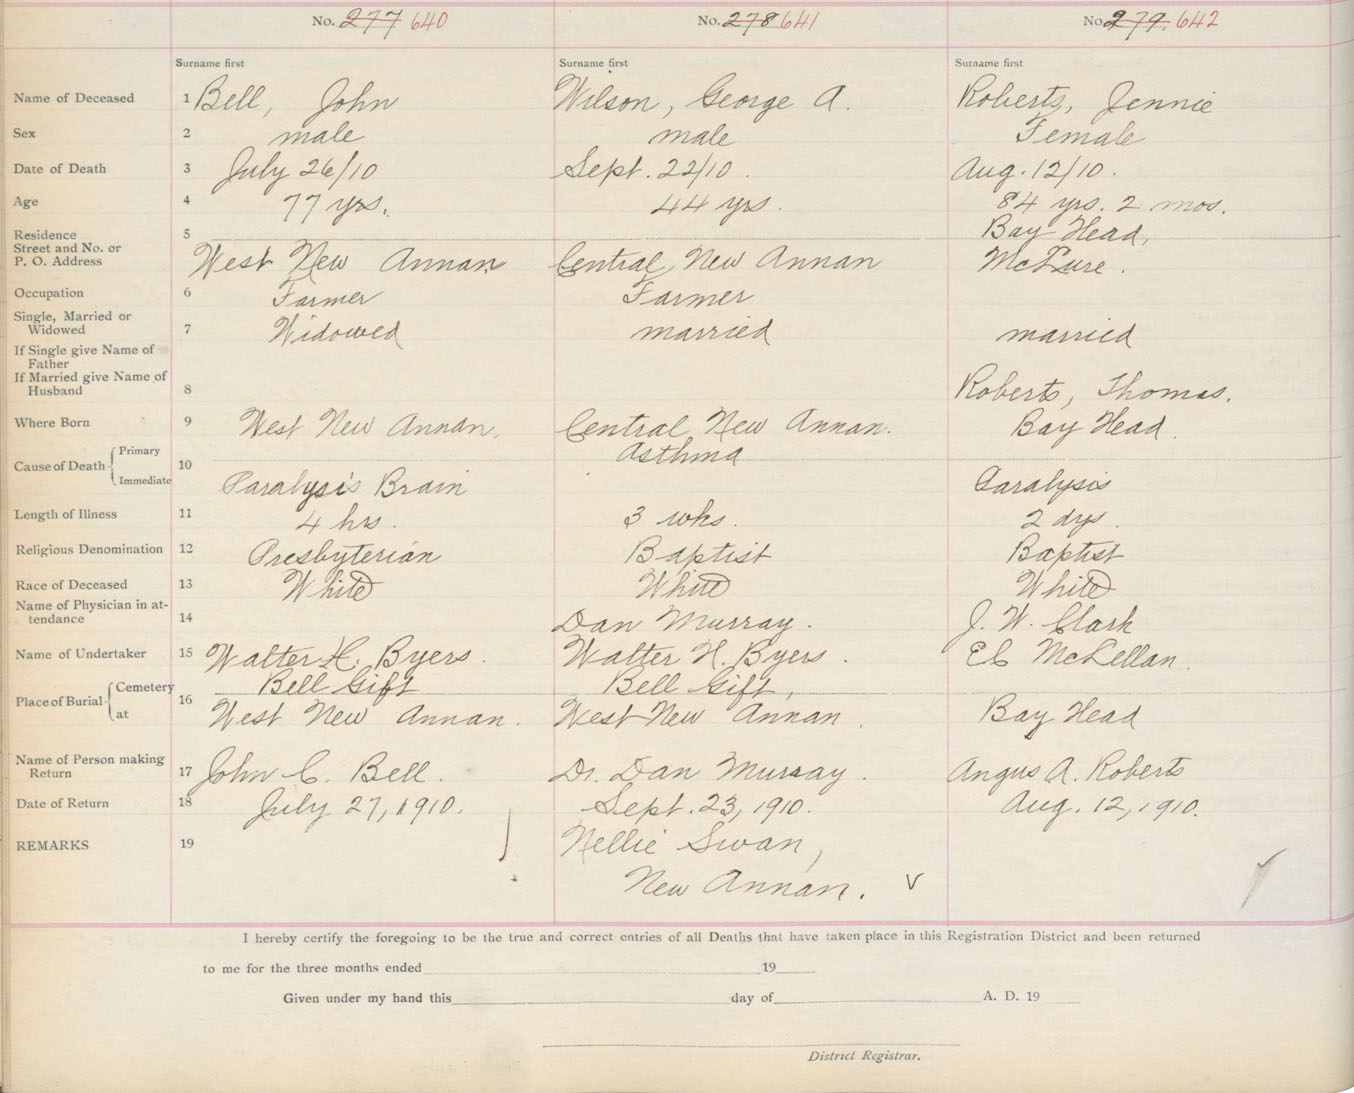 No. 277 640 No. 278 641 No. 279. 642
Surname first Surname first Surname first
Name of Deceased 1 Bell, John Wilson, George A. Roberts, Jennie
Sex 2 male male Female
Date of Death 3 July 26/10 Sept. 22/10. Aug. 12/10.
Age 4 77 yrs. 44 yrs. 84 yrs. 2 mos.
Residence 5 Bay Head,
Street and No. or
P. O. Address West New Annan Central New Annan McLure.
Occupation 6 Farmer Farmer
Single, Married or
Widowed 7 Widowed married married
If Single give Name of
Father
If Married give Name of
Husband 8 Roberts, Thomas.
Where Born 9 West New Annan. Central New Annan. Bay Head.
Cause of Death Primary 10 Asthma
Immediate Paralysis Brain Paralysis
Length of Illness 11 4 hrs. 3 wks. 2 dys.
Religious Denomination 12 Presbyterian Baptist Baptist
Race of Deceased 13 White White White
Name of Physician in at-
tendance 14 Dan Murray. J. W. Clark
Name of Undertaker 15 Walter H. Byers. Walter H. Byers. EC McLellan.
Place of Burial Cemetery 16 Bell Gift Bell Gift,
at West New Annan. West New Annan. Bay Head
Name of Person making
Return 17 John C. Bell. Dr. Dan Murray. Angus A. Roberts
Date of Return 18 July 27, 1910. Sept. 23, 1910. Aug. 12, 1910.
REMARKS 19 Nellie Swan,
New Annan. v
I hereby certify the foregoing to be the true and correct entries of all Deaths that have taken place in this Registration District and been returned
to me for the three months ended 19
Given under my hand this day of A. D. 19
District Registrar.